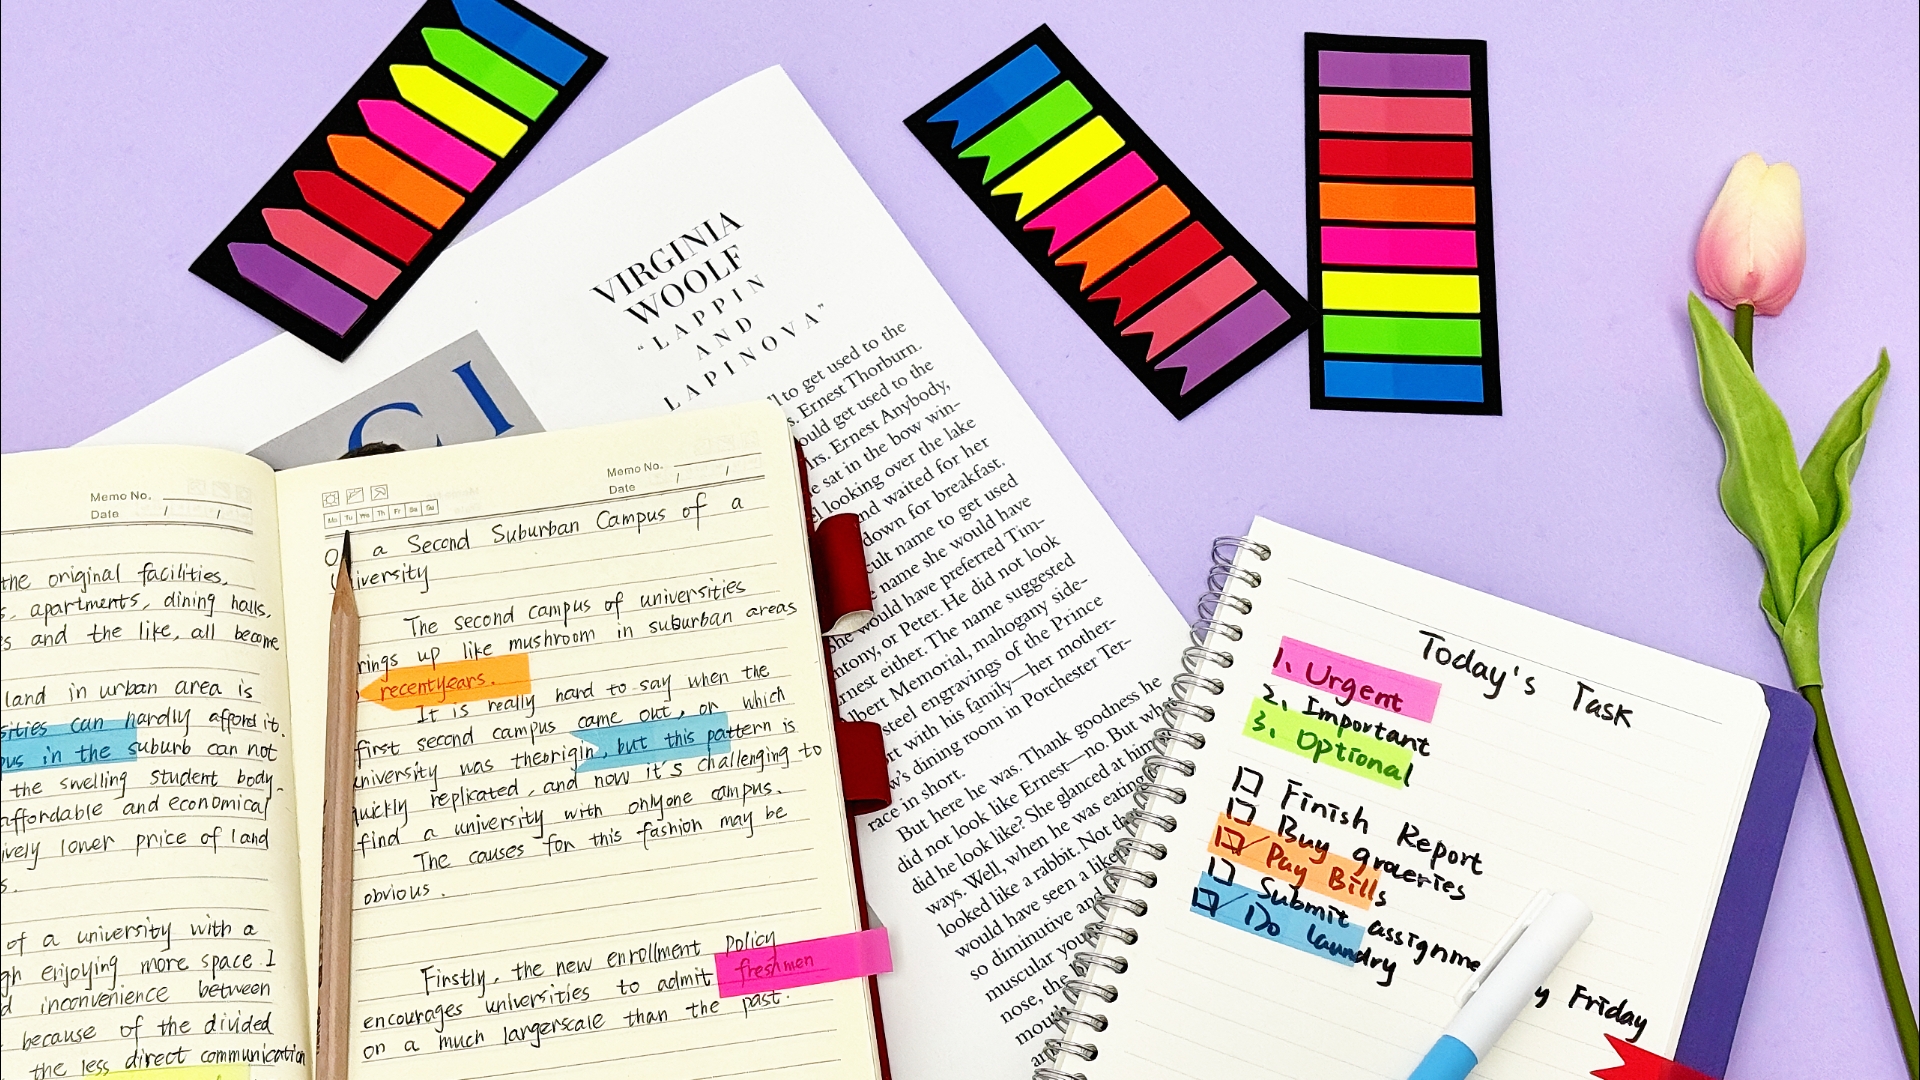 VIRGINIA
WOOLF
"LAPPIN
AND
LAPINOVA"
CI
to get used to the
Ernest Thorburn.
ould get used to the
rs. Ernest Anybody,
e sat in the bow win-
looking over the lake
and waited for her
down for breakfast.
cult name to get used
e name she would have
would have preferred Tim-
ntony, or Peter. He did not look
rnest either. The name suggested
lbert Memorial, mahogany side-
steel engravings of the Prince
rt with his family—her mother-
w's dining room in Porchester Ter-
race in short.
But here he was. Thank goodness he
did not look like Ernest—no. But what
did he look like? She glanced at him
ways. Well, when he was eating
looked like a rabbit. Not th
would have seen a liken
so diminutive and
muscular you
nose, the b
mouth
Memo No.
Date / /
the original facilities,
s, apartments, dining halls,
s and the like, all become
land in urban area is
sities can hardly afford it.
pus in the suburb can not
the swelling student body.
affordable and economical
ively loner price of land
s.
of a university with a
gh enjoying more space I
d inconvenience between
because of the divided
the less direct communication
Memo No.
Date / /
Mo Tu We Th Fr Sa Su
O a Second Suburban Campus of a
University
The second campus of universities
rings up like mushroom in suburban areas
recentyears.
It is really hard to say when the
first second campus came out, or which
university was theorigin, but this pattern is
quickly replicated, and now it's challenging to
find a university with onlyone campus.
The causes for this fashion may be
obvious.
Firstly, the new enrollment policy
encourages universities to admit freshmen
on a much largerscale than the past.
Today's Task
1. Urgent
2. Important
3. Optional
Finish Report
Buy groceries
Pay Bills
Submit assignme
Do laundry
y Friday